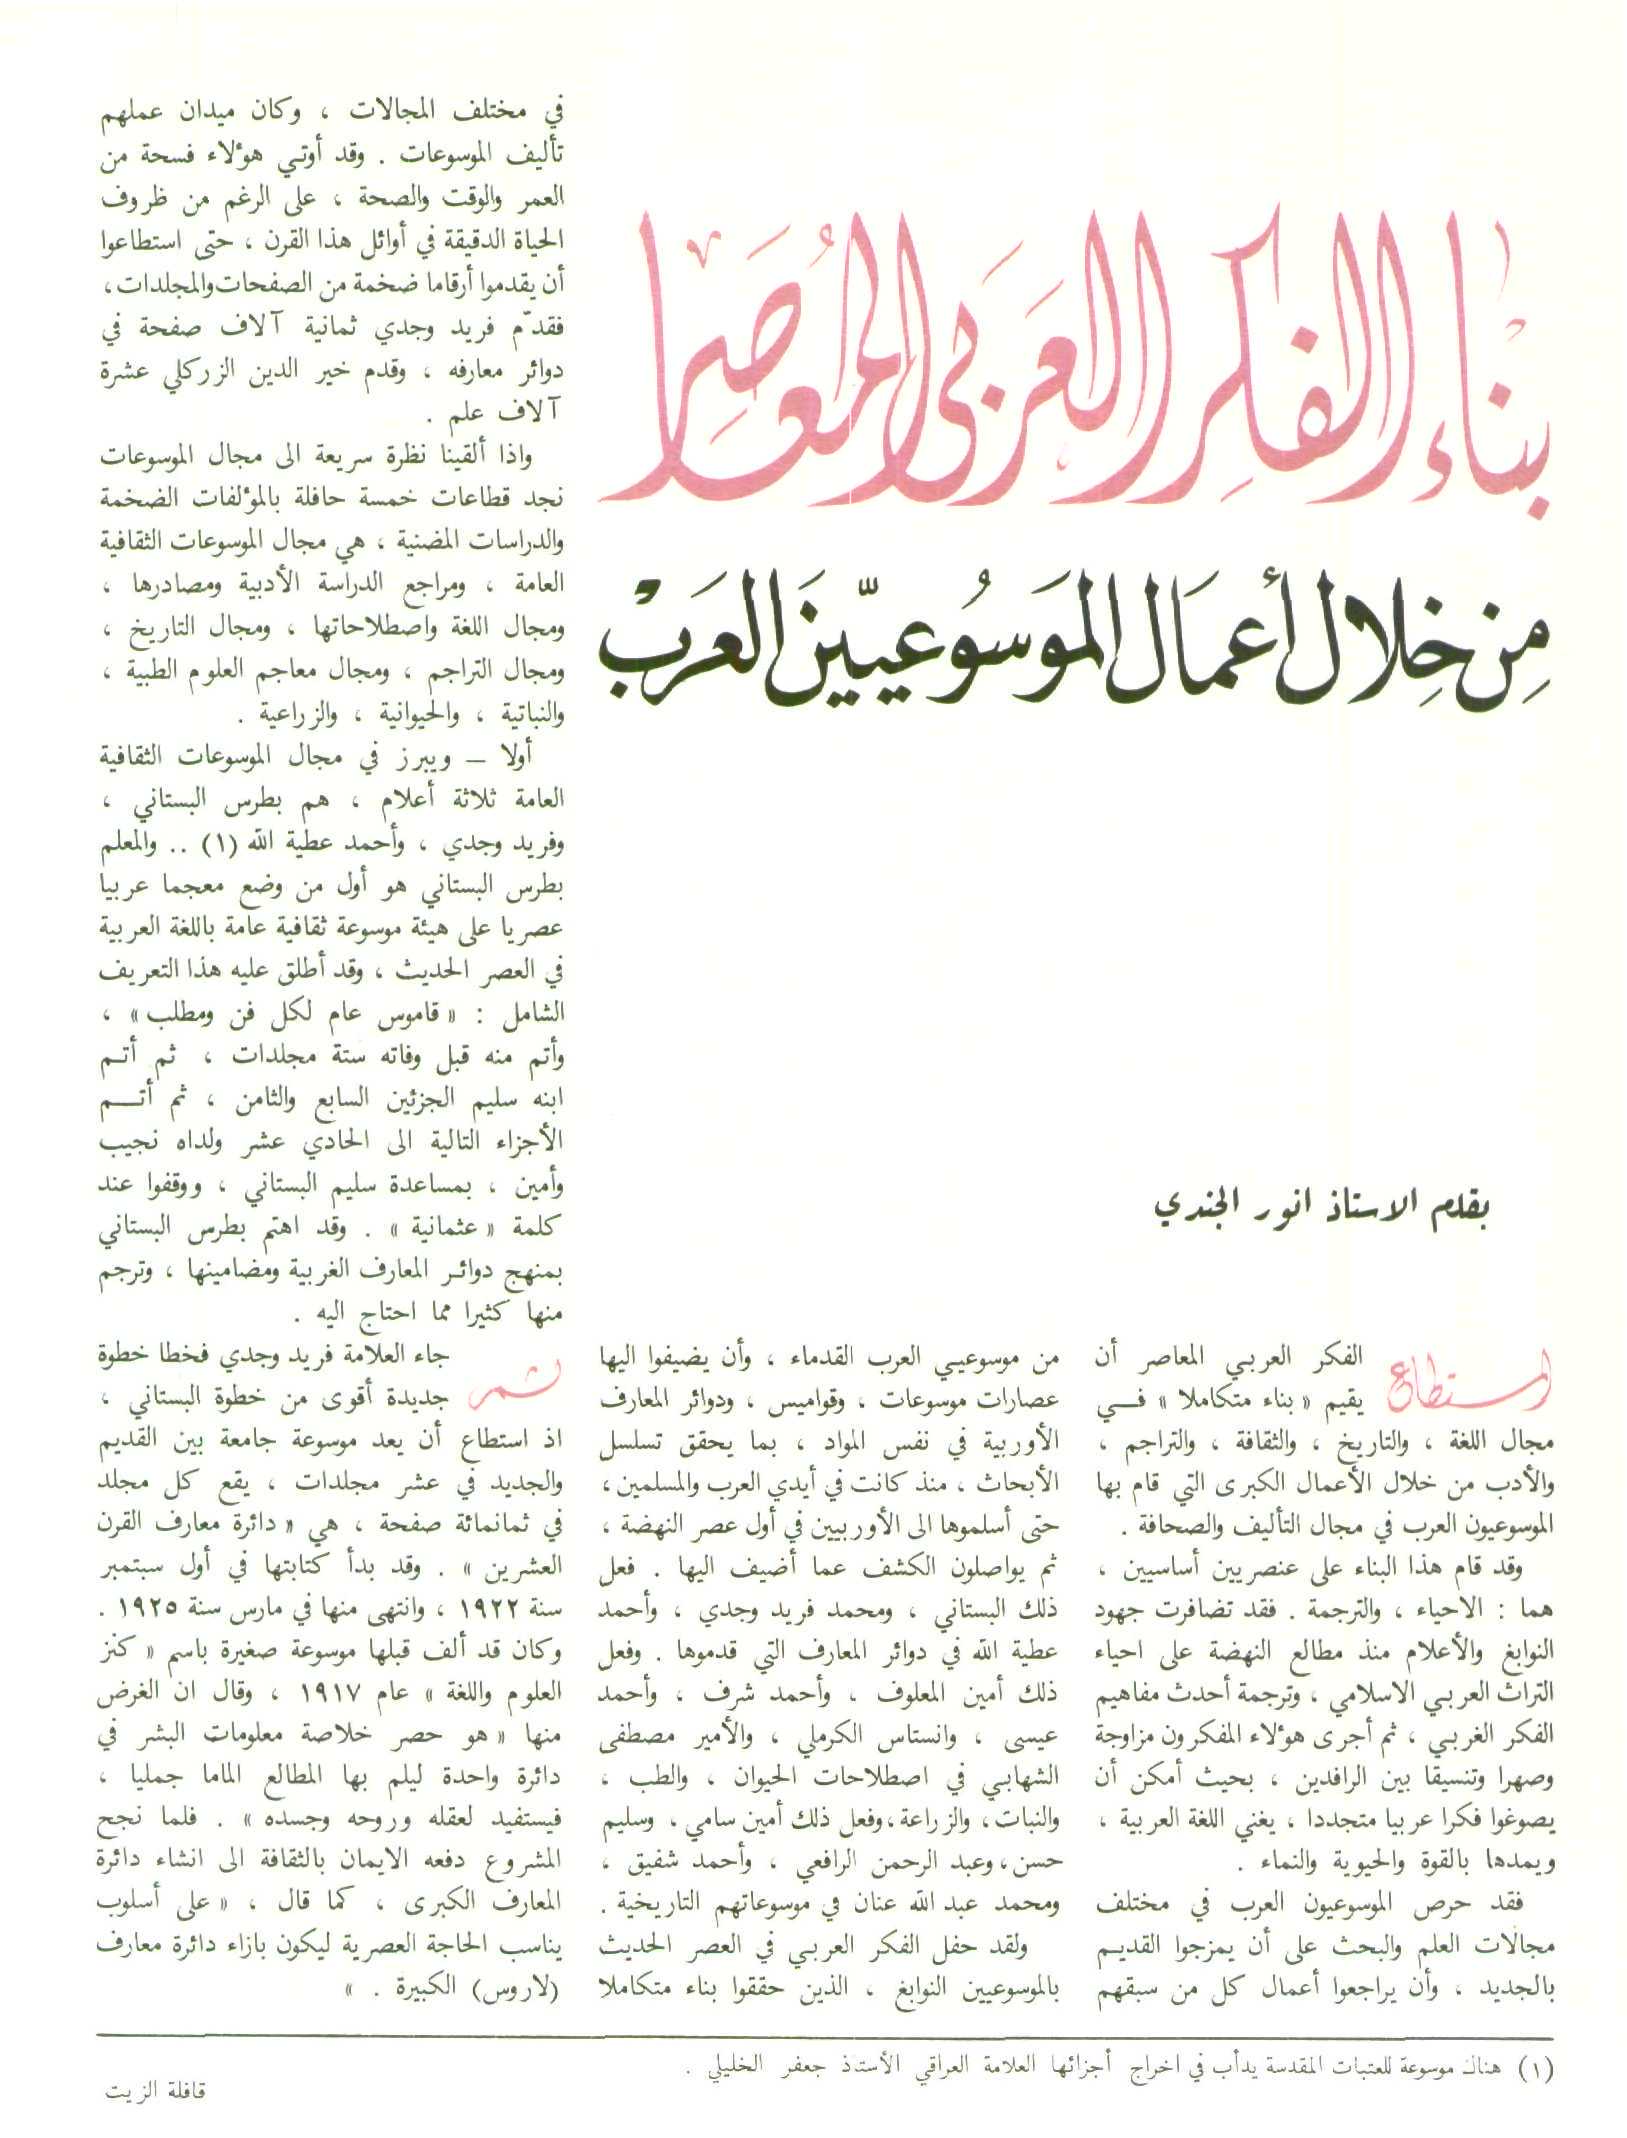 بناء الفكر العربي المعاصر
مِن خِلال أعمَال الموَسوُعيّينَ العَربْ
بقلم الاستاذ انور الجندي
استطاع الفكر العربي المعاصر أن
يقيم « بناء متكاملا » في
مجال اللغة ، والتاريخ ، والثقافة ، والتراجم ،
والأدب من خلال الأعمال الكبرى التي قام بها
الموسوعيون العرب في مجال التأليف والصحافة .
وقد قام هذا البناء على عنصريين أساسيين ،
هما : الاحياء ، والترجمة . فقد تضافرت جهود
النوابغ والأعلام منذ مطالع النهضة على احياء
التراث العربي الاسلامي ، وترجمة أحدث مفاهيم
الفكر الغربي ، ثم أجرى هؤلاء المفكرون مزاوجة
وصهرا وتنسيقا بين الرافدين ، بحيث أمكن أن
يصوغوا فكرا عربيا متجددا ، يغني اللغة العربية ،
ويمدها بالقوة والحيوية والنماء .
فقد حرص الموسوعيون العرب في مختلف
مجالات العلم والبحث على أن يمزجوا القديم
بالجديد ، وأن يراجعوا أعمال كل من سبقهم
من موسوعيي العرب القدماء ، وأن يضيفوا اليها
عصارات موسوعات ، وقواميس ، ودوائر المعارف
الأوربية في نفس المواد ، بما يحقق تسلسل
الأبحاث ، منذ كانت في أيدي العرب والمسلمين ،
حتى أسلموها الى الأوربيين في أول عصر النهضة ،
ثم يواصلون الكشف عما أضيف اليها . فعل
ذلك البستاني ، ومحمد فريد وجدي ، وأحمد
عطية الله في دوائر المعارف التي قدموها . وفعل
ذلك أمين المعلوف ، وأحمد شرف ، وأحمد
عيسى ، وانستاس الكرملي ، والأمير مصطفى
الشهابي في اصطلاحات الحيوان ، والطب ،
والنبات، والزراعة،وفعل ذلك أمين سامي ، وسليم
حسن، وعبد الرحمن الرافعي ، وأحمد شفيق ،
ومحمد عبد الله عنان في موسوعاتهم التاريخية .
ولقد حفل الفكر العربي في العصر الحديث
بالموسوعيين النوابغ ، الذين حققوا بناء متكاملا
في مختلف المجالات ، وكان ميدان عملهم
تأليف الموسوعات . وقد أوتي هؤلاء فسحة من
العمر والوقت والصحة ، على الرغم من ظروف
الحياة الدقيقة في أوائل هذا القرن ، حتى استطاعوا
أن يقدموا أرقاما ضخمة من الصفحات والمجلدات ،
فقدّم فريد وجدي ثمانية آلاف صفحة في
دوائر معارفه ، وقدم خير الدين الزركلي عشرة
آلاف علم .
واذا ألقينا نظرة سريعة الى مجال الموسوعات
نجد قطاعات خمسة حافلة بالمؤلفات الضخمة
والدراسات المضنية ، هي مجال الموسوعات الثقافية
العامة ، ومراجع الدراسة الأدبية ومصادرها ،
ومجال اللغة واصطلاحاتها ، ومجال التاريخ ،
ومجال التراجم ، ومجال معاجم العلوم الطبية ،
والنباتية ، والحيوانية ، والزراعية .
أولا – ويبرز في مجال الموسوعات الثقافية
العامة ثلاثة أعلام ، هم بطرس البستاني ،
وفريد وجدي ، وأحمد عطية الله (١) .. والمعلم
بطرس البستاني هو أول من وضع معجما عربيا
عصريا على هيئة موسوعة ثقافية عامة باللغة العربية
في العصر الحديث ، وقد أطلق عليه هذا التعريف
الشامل : « قاموس عام لكل فن ومطلب » ،
وأتم منه قبل وفاته ستة مجلدات ، ثم أتم
ابنه سليم الجزئين السابع والثامن ، ثم أتم
الأجزاء التالية الى الحادي عشر ولداه نجيب
وأمين ، بمساعدة سليم البستاني ، ووقفوا عند
كلمة « عثمانية » . وقد اهتم بطرس البستاني
بمنهج دوائر المعارف الغربية ومضامينها ، وترجم
منها كثيرا مما احتاج اليه .
ثم جاء العلامة فريد وجدي فخطا خطوة
جديدة أقوى من خطوة البستاني ،
اذ استطاع أن يعد موسوعة جامعة بين القديم
والجديد في عشر مجلدات ، يقع كل مجلد
في ثمانمائة صفحة ، هي « دائرة معارف القرن
العشرين » . وقد بدأ كتابتها في أول سبتمبر
سنة ١٩٢٢ ، وانتهى منها في مارس سنة ١٩٢٥ .
وكان قد ألف قبلها موسوعة صغيرة باسم « كنز
العلوم واللغة » عام ١٩١٧ ، وقال ان الغرض
منها « هو حصر خلاصة معلومات البشر في
دائرة واحدة ليلم بها المطالع الماما جمليا ،
فيستفيد لعقله وروحه وجسده » . فلما نجح
المشروع دفعه الايمان بالثقافة الى انشاء دائرة
المعارف الكبرى ، كما قال ، « على أسلوب
يناسب الحاجة العصرية ليكون بازاء دائرة معارف
(لاروس) الكبيرة . »
(١) هناك موسوعة للعتبات المقدسة يدأب في اخراج أجزائها العلامة العراقي الأستاذ جعفر الخليلي .
قافلة الزيت